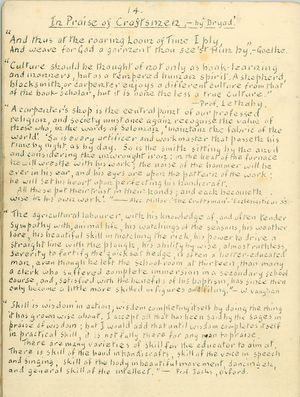 14.
In Praise of Craftsmen, - by Dryad.
"And thus at the roaring Loom of Time I ply,
And weave for God a garment thou see'st Him by," - Goethe.
"Culture should be thought of not only as book-learning
and manners, but as a tempered human spirit. A shepherd,
blacksmith, or carpenter enjoys a different culture from that
of the book-scholar, but it is none the less a true culture."
- Prof. Lethaby.
"A carpenter's shop is the central point of our professed
religion, and society must once again recognise the value of
those who, in the words of Solomon, 'maintain the fabric of the
world.' So is every artificer and workmaster that passeth his
time by night as by day. So is the smith sitting by the anvil
and considering the unwrought iron: in the heat of the furnace
he will wrestle with his work: the noise of the hammer will be
ever in his ear, and his eyes are upon the pattern of the work:
he will set his heart upon perfecting his handicraft.
All these put their trust in their hands; and each becometh
wise in his own work."
"The agricultural labourer, with his knowledge of, and often tender
sympathy with animal life, his watchings of the seasons, his weather
lore, his beautiful skill in thatching the rick, his power to drive a
straight line with the plough, his ability by wise, almost ruthless,
severity to fortify the quickset hedge, is often a better-educated
man, even though he left the schoolroom at thirteen, than many
a clerk who suffered complete immersion in a secondary school
course, and, satisfied with the benefits of his baptism, has since then
only become a little more skilled in figures and filing." - Vaughan
"Skill is wisdom in action; wisdom completing itself by doing the thing
it has grown wise about. I accept all that has been said by the sages in
praise of wisdom; but I would add that until wisdom completes itself
in practical skill, it is not fully there for any man to praise.
There are many varieties of skill for the educator to aim at.
There is skill of the hand in handicrafts, skill of the voice in speech
and singing, skill of the body in beautiful movement, dancing etc,
and general skill of the intellect." - Prof. Jacks, Oxford.